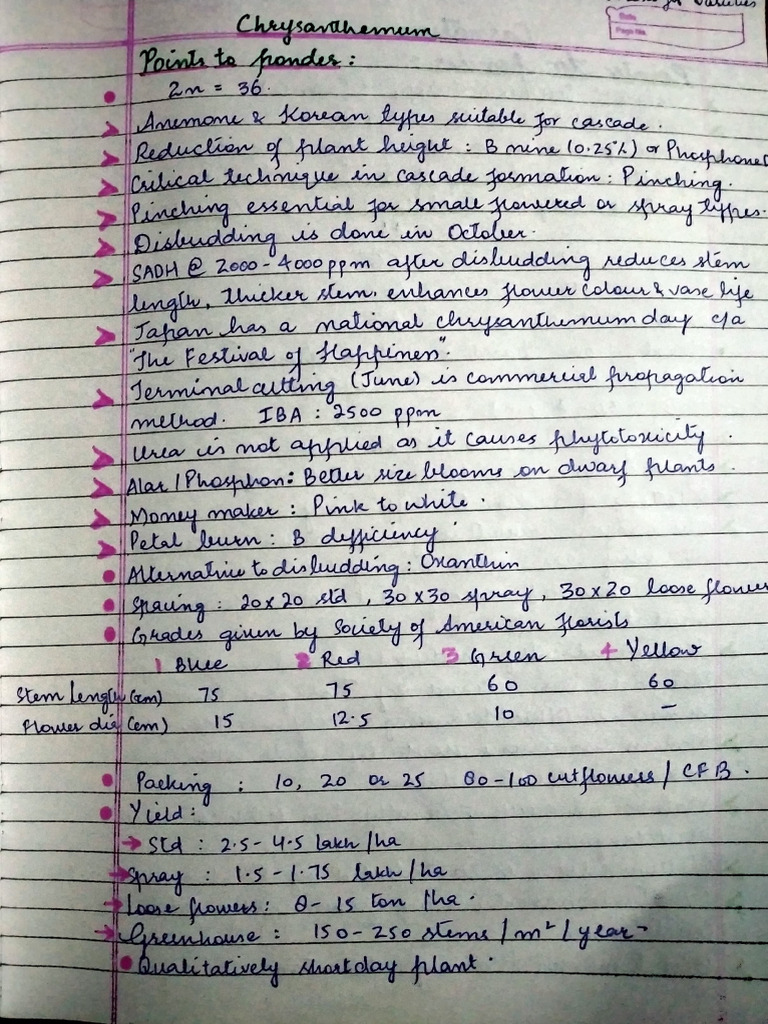 for varieties
Date
Page No.
Chrysanthemum
Points to ponder :
2n = 36.
Anemone & Korean types suitable for cascade.
Reduction of plant height : B nine (0.25%) or Phosphone
Critical technique in cascade formation : Pinching.
Pinching essential for small flowered or spray types.
Disbudding is done in October.
SADH @ 2000-4000 ppm after disbudding reduces stem
length, thicker stem. enhances flower colour & vase life
Japan has a national chrysanthemum day c/a
"The Festival of Happiness".
Terminal cutting (June) is commercial propagation
method. IBA : 2500 ppm
Urea is not applied as it causes phytotoxicity.
Alar / Phosphon : Better size blooms on dwarf plants.
Money maker : Pink to white.
Petal burn : B defficiency
Alternative to disbudding : Oxanthin
Spacing : 20x20 std, 30x30 spray, 30x20 loose flower
Grades given by Society of American florists
1 Blue 2 Red 3 Green 4 Yellow
Stem length (cm) 75 75 60 60
Flower dia (cm) 15 12.5 10 -
Packing : 10, 20 or 25 80-100 cutflowers / CFB.
Yield :
→ Std : 2.5-4.5 lakh /ha
→ Spray : 1.5-1.75 lakh /ha
→ Loose flowers : 8-15 ton /ha.
→ Greenhouse : 150-250 stems / m² / year-
Qualitatively shortday plant.